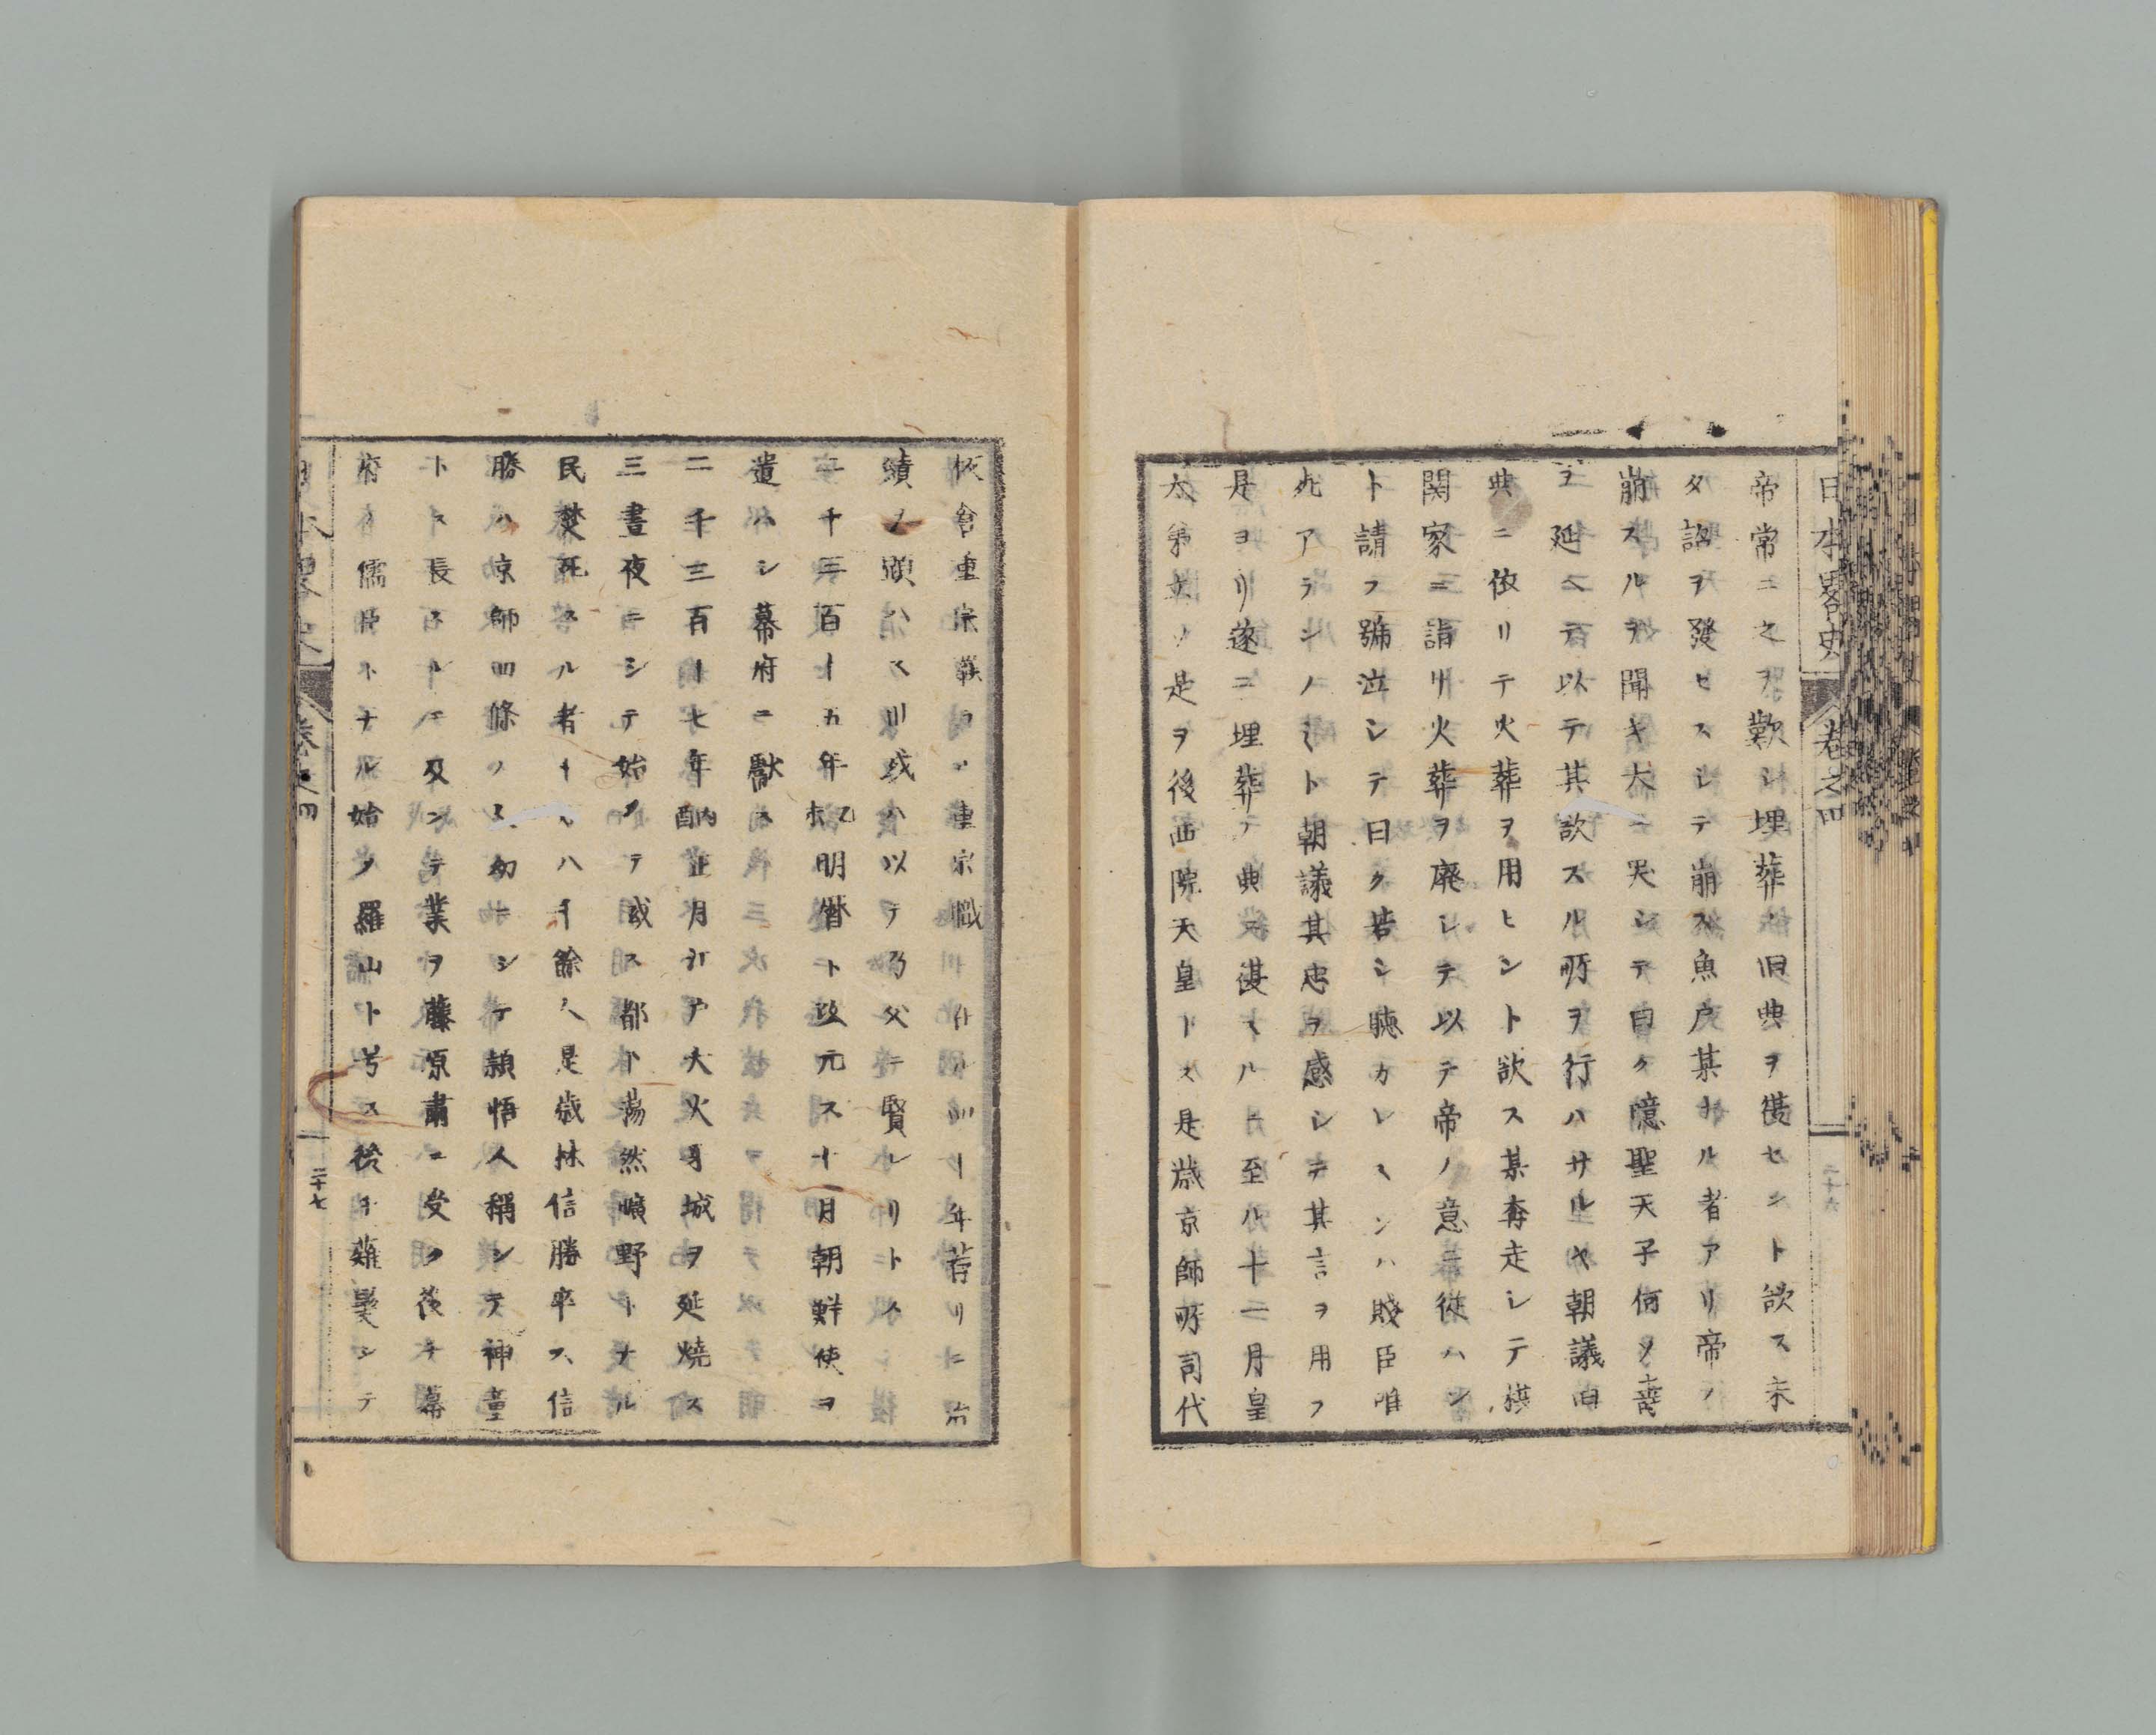 日本畧史 卷之四
帝常ニ之ヲ歎シ埋葬ノ旧典ヲ復セント欲ス未
タ詔ヲ發セスシテ崩ス魚戸某ナル者アリ帝ノ
崩スルヲ聞キ大ニ哭シテ自ク噫聖天子何ソ壽
ヲ延ヘテ以テ其欲スル所ヲ行ハサルヤ朝議旧
典ニ依リテ火葬ヲ用ヒント欲ス某奔走シテ摂
関家ニ詣リ火葬ヲ廃シテ以テ帝ノ意ニ從ハン
ト請フ號泣シテ曰ク若シ聴カレスンハ賤臣唯
死アランノミト朝議其忠ヲ感シテ其言ヲ用フ
是ヨリ遂ニ埋葬ノ典ニ復スル至ル十一月皇
太弟立ツ是ヲ後西院天皇トス是歳京師所司代
板倉重宗職ヲ重宗職 年 治
績ノ顕ハス 或ハ以テ乃父ニ賢レリトス
二千三百十五年乙未明暦ト改元ス十月朝鮮使ヲ
遣ハシ幕府ニ獻ス
二千三百十七年丁酉正月江戸大火牙城ヲ延燒ス
三晝夜ニシテ始メテ滅ス都下蕩然曠野トナル
民焚死スル者十万八千餘人是歳林信勝卒ス信
勝ハ京師四條ノ人幼ニシテ頴悟人稱シテ神童
トス長スルニ及ンテ業ヲ藤原肅ニ受ク後チ幕
府ノ儒臣トナル始メ羅山ト号ス後チ薙髮シテ
日本畧史 卷之四
二十七